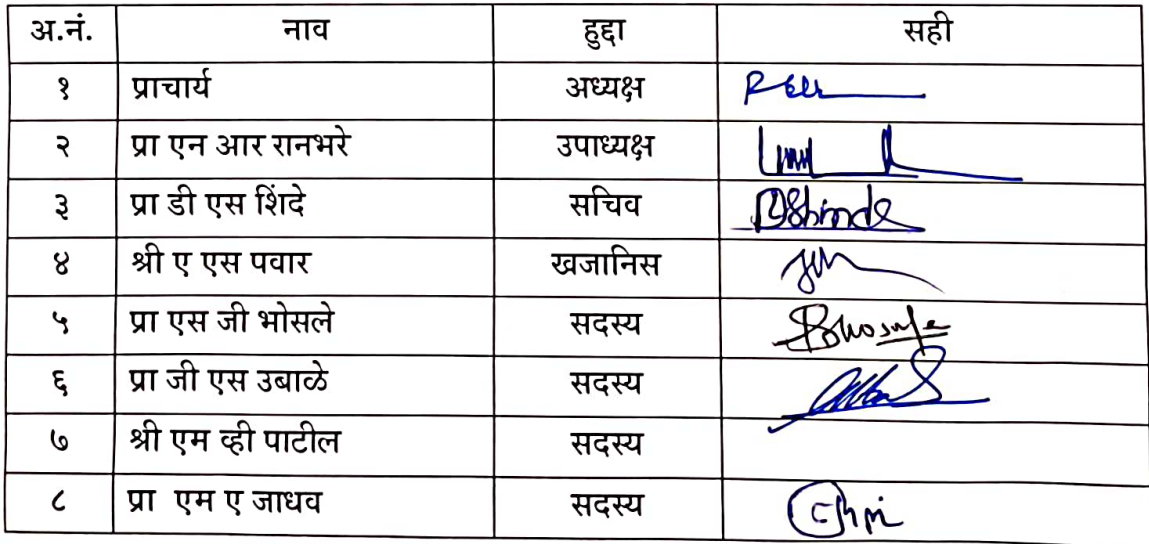 अ.नं. नाव हुद्दा सही
१ प्राचार्य अध्यक्ष
२ प्रा एन आर रानभरे उपाध्यक्ष
३ प्रा डी एस शिंदे सचिव DShinde
४ श्री ए एस पवार खजानिस
५ प्रा एस जी भोसले सदस्य Bhosale
६ प्रा जी एस उबाळे सदस्य
७ श्री एम व्ही पाटील सदस्य
८ प्रा एम ए जाधव सदस्य